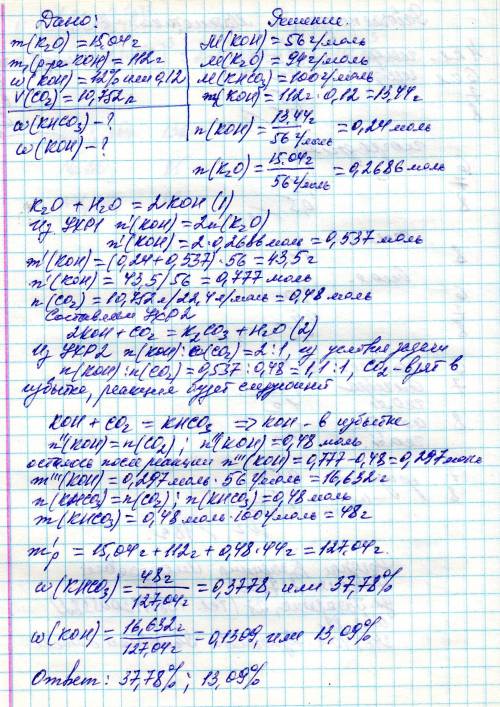 Дано:
m(K₂O) = 15,04г
m₁(р-ра KOH) = 112г
ω(KOH) = 12% или 0,12
V(CO₂) = 10,752л
ω(KHCO₃) - ?
ω(KOH) - ?
Решение.
M(KOH) = 56г/моль
M(K₂O) = 94г/моль
M(KHCO₃) = 100г/моль
m(KOH) = 112г · 0,12 = 13,44г
n(KOH) = 13,44г / 56г/моль = 0,24моль
n(K₂O) = 15,04г / 56г/моль = 0,2686моль
K₂O + H₂O = 2KOH (1)
Из УХР1 n'(KOH) = 2n(K₂O)
n'(KOH) = 2·0,2686моль = 0,537моль
m'(KOH) = (0,24+0,537)·56 = 43,5г
n'(KOH) = 43,5/56 = 0,777моль
n(CO₂) = 10,752л/22,4л/моль = 0,48моль
Составляем УХР2
2KOH + CO₂ = K₂CO₃ + H₂O (2)
Из УХР2 n(KOH):n(CO₂) = 2:1, из условия задачи
n(KOH):n(CO₂) = 0,537:0,48 = 1,1:1, CO₂ - взят в
избытке, реакция будет следующей
KOH + CO₂ = KHCO₃ => KOH - в избытке
n''(KOH) = n(CO₂); n''(KOH) = 0,48моль
осталось после реакции n'''(KOH) = 0,777-0,48 = 0,297моль
m'''(KOH) = 0,297моль·56г/моль = 16,632г
n(KHCO₃) = n(CO₂); n(KHCO₃) = 0,48моль
m(KHCO₃) = 0,48моль·100г/моль = 48г
m'р = 15,04г + 112г + 0,48·44г = 127,04г.
ω(KHCO₃) = 48г / 127,04г = 0,3778, или 37,78%
ω(KOH) = 16,632г / 127,04г = 0,1309, или 13,09%
Ответ: 37,78%; 13,09%